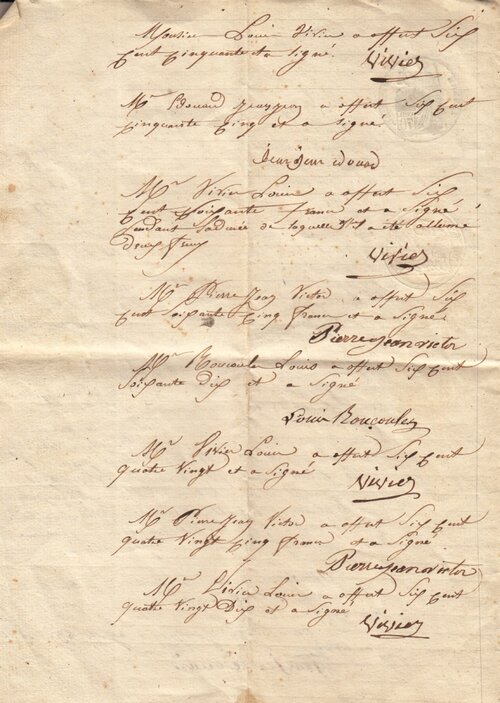 Monsieur Louis Vivier a offert Six
Cent Cinquante et a signé.
Vivier
Mr Edouard Jeanjean a offert Six Cent
Cinquante Cinq et a signé
Jean Jean Edouard
Mr Vivier Louis a offert Six
Cent Soixante francs et a Signé
pendant la durée de laquelle il a été allumé
deux feux
Vivier
Mr Pierre Jean Victor a offert Six
Cent soixante Cinq francs et a Signé
Pierre Jean victor
Mr Roucoules Louis a offert Six Cent
Soixante dix et a Signé
Louis Roucoules
Mr Vivier Louis a offert Six Cent
quatre Vingt et a Signé
Vivier
Mr Pierre Jean Victor a offert Six Cent
quatre Vingt Cinq francs et a Signé
Pierre Jean victor
Mr Vivier Louis a offert Six Cent
quatre Vingt Dix et a Signé
Vivier